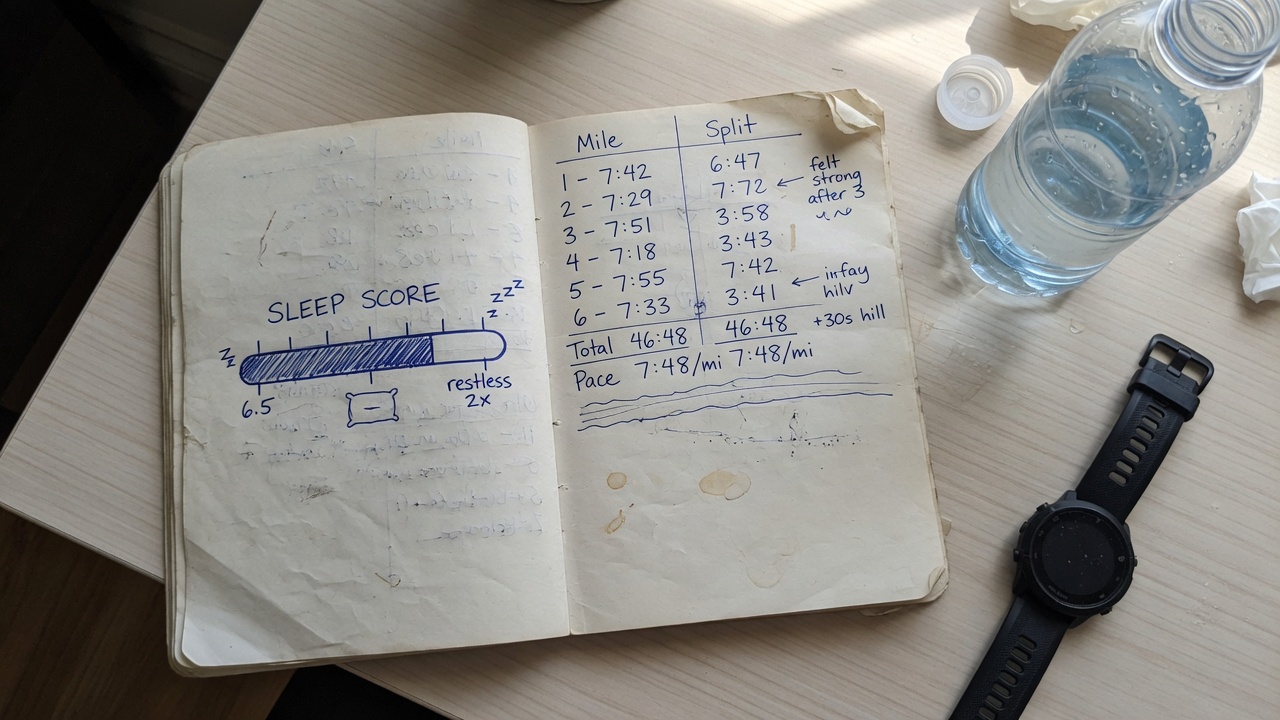 SLEEP SCORE
zzz
zz
6.5
restless
2x
Mile Split
1 - 7:42 6:47
2 - 7:29 7:72
3 - 7:51 3:58
4 - 7:18 3:43
5 - 7:55 7:42
6 - 7:33 3:41
felt
strong
after 3
infay
hilv
Total 46:48 46:48 +30s hill
Pace 7:48/mi 7:48/mi